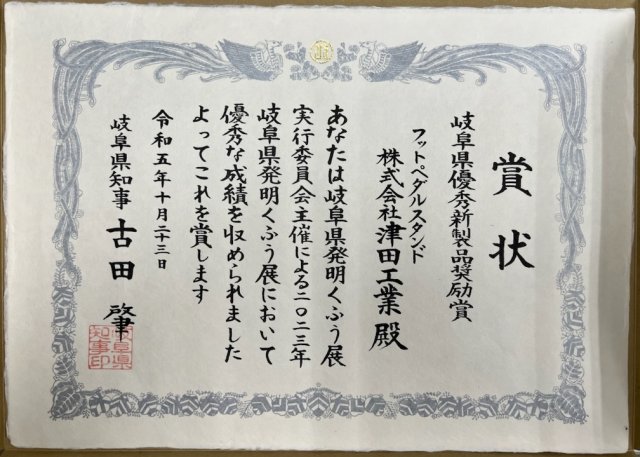 賞状
岐阜県優秀新製品奨励賞
フットペダルスタンド
株式会社津田工業殿
あなたは岐阜県発明くふう展
実行委員会主催による二〇二三年
岐阜県発明くふう展において
優秀な成績を収められました
よってこれを賞します
令和五年十月二十三日
岐阜県知事 古田 肇
岐阜県
知事印